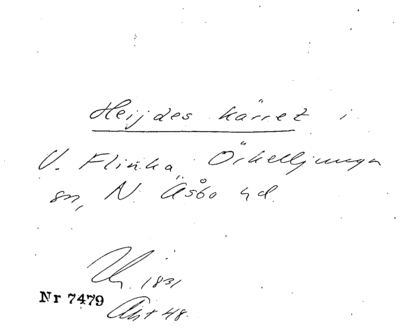 Heijdes kärret i
V. Flinka, Örkelljunga
sn, N. Åsbo hd.
1831
Nr 7479
Akt 48.